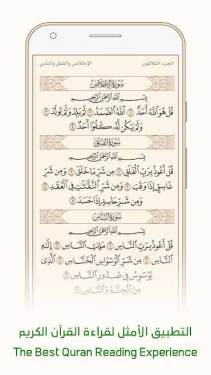 الجزء الثلاثون الإخلاص والفلق والناس
سُورَةُ الإِخْلَاصِ
بِسْمِ اللَّهِ الرَّحْمَٰنِ الرَّحِيمِ
قُلْ هُوَ اللَّهُ أَحَدٌ ١ اللَّهُ الصَّمَدُ ٢ لَمْ يَلِدْ وَلَمْ يُولَدْ ٣
وَلَمْ يَكُن لَّهُۥ كُفُوًا أَحَدٌ ٤
سُورَةُ الفَلَقِ
بِسْمِ اللَّهِ الرَّحْمَٰنِ الرَّحِيمِ
قُلْ أَعُوذُ بِرَبِّ الْفَلَقِ ١ مِن شَرِّ مَا خَلَقَ ٢ وَمِن شَرِّ
غَاسِقٍ إِذَا وَقَبَ ٣ وَمِن شَرِّ النَّفَّٰثَٰتِ فِي الْعُقَدِ ٤
وَمِن شَرِّ حَاسِدٍ إِذَا حَسَدَ ٥
سُورَةُ النَّاسِ
بِسْمِ اللَّهِ الرَّحْمَٰنِ الرَّحِيمِ
قُلْ أَعُوذُ بِرَبِّ النَّاسِ ١ مَلِكِ النَّاسِ ٢ إِلَٰهِ
النَّاسِ ٣ مِن شَرِّ الْوَسْوَاسِ الْخَنَّاسِ ٤ الَّذِي
يُوَسْوِسُ فِي صُدُورِ النَّاسِ ٥
مِنَ الْجِنَّةِ وَالنَّاسِ ٦
التطبيق الأمثل لقراءة القرآن الكريم
The Best Quran Reading Experience